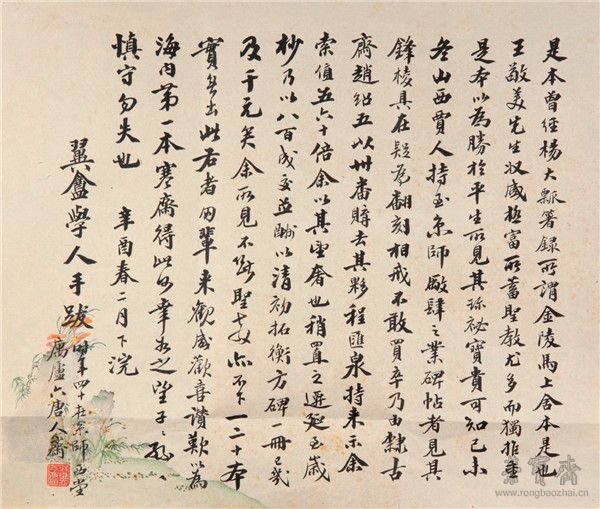 是本曾經楊大瓢箸録所謂金陵馬上舍本是也
王敬美先生收藏極富所蓄聖教尤多而獨推重
是本以為勝於平生所見其珍祕寶貴可知已未
冬山西賈人持至京師厰肆之業碑帖者見其
鋒棱具在疑為翻刻相戒不敢買卒乃由隸古
齋趙紹五以卅番購去其夥程匯泉持来示余
索值五六十倍余以其望奢也稍置之遷延至嵗
杪乃以八百成交並酬以清初拓衡方碑一冊已幾
及千元矣余所見不斷聖教亦不下一二十本
實無出此右者同輩来觀咸歡喜讚歎以為
海内第一本寒齋得此何幸如之望子々孫
慎守勿失也 辛酉春二月下浣
翼盦學人手跋
時年四十在京師西堂
六唐人齋
榮寶齋
www.rongbaozhai.cn